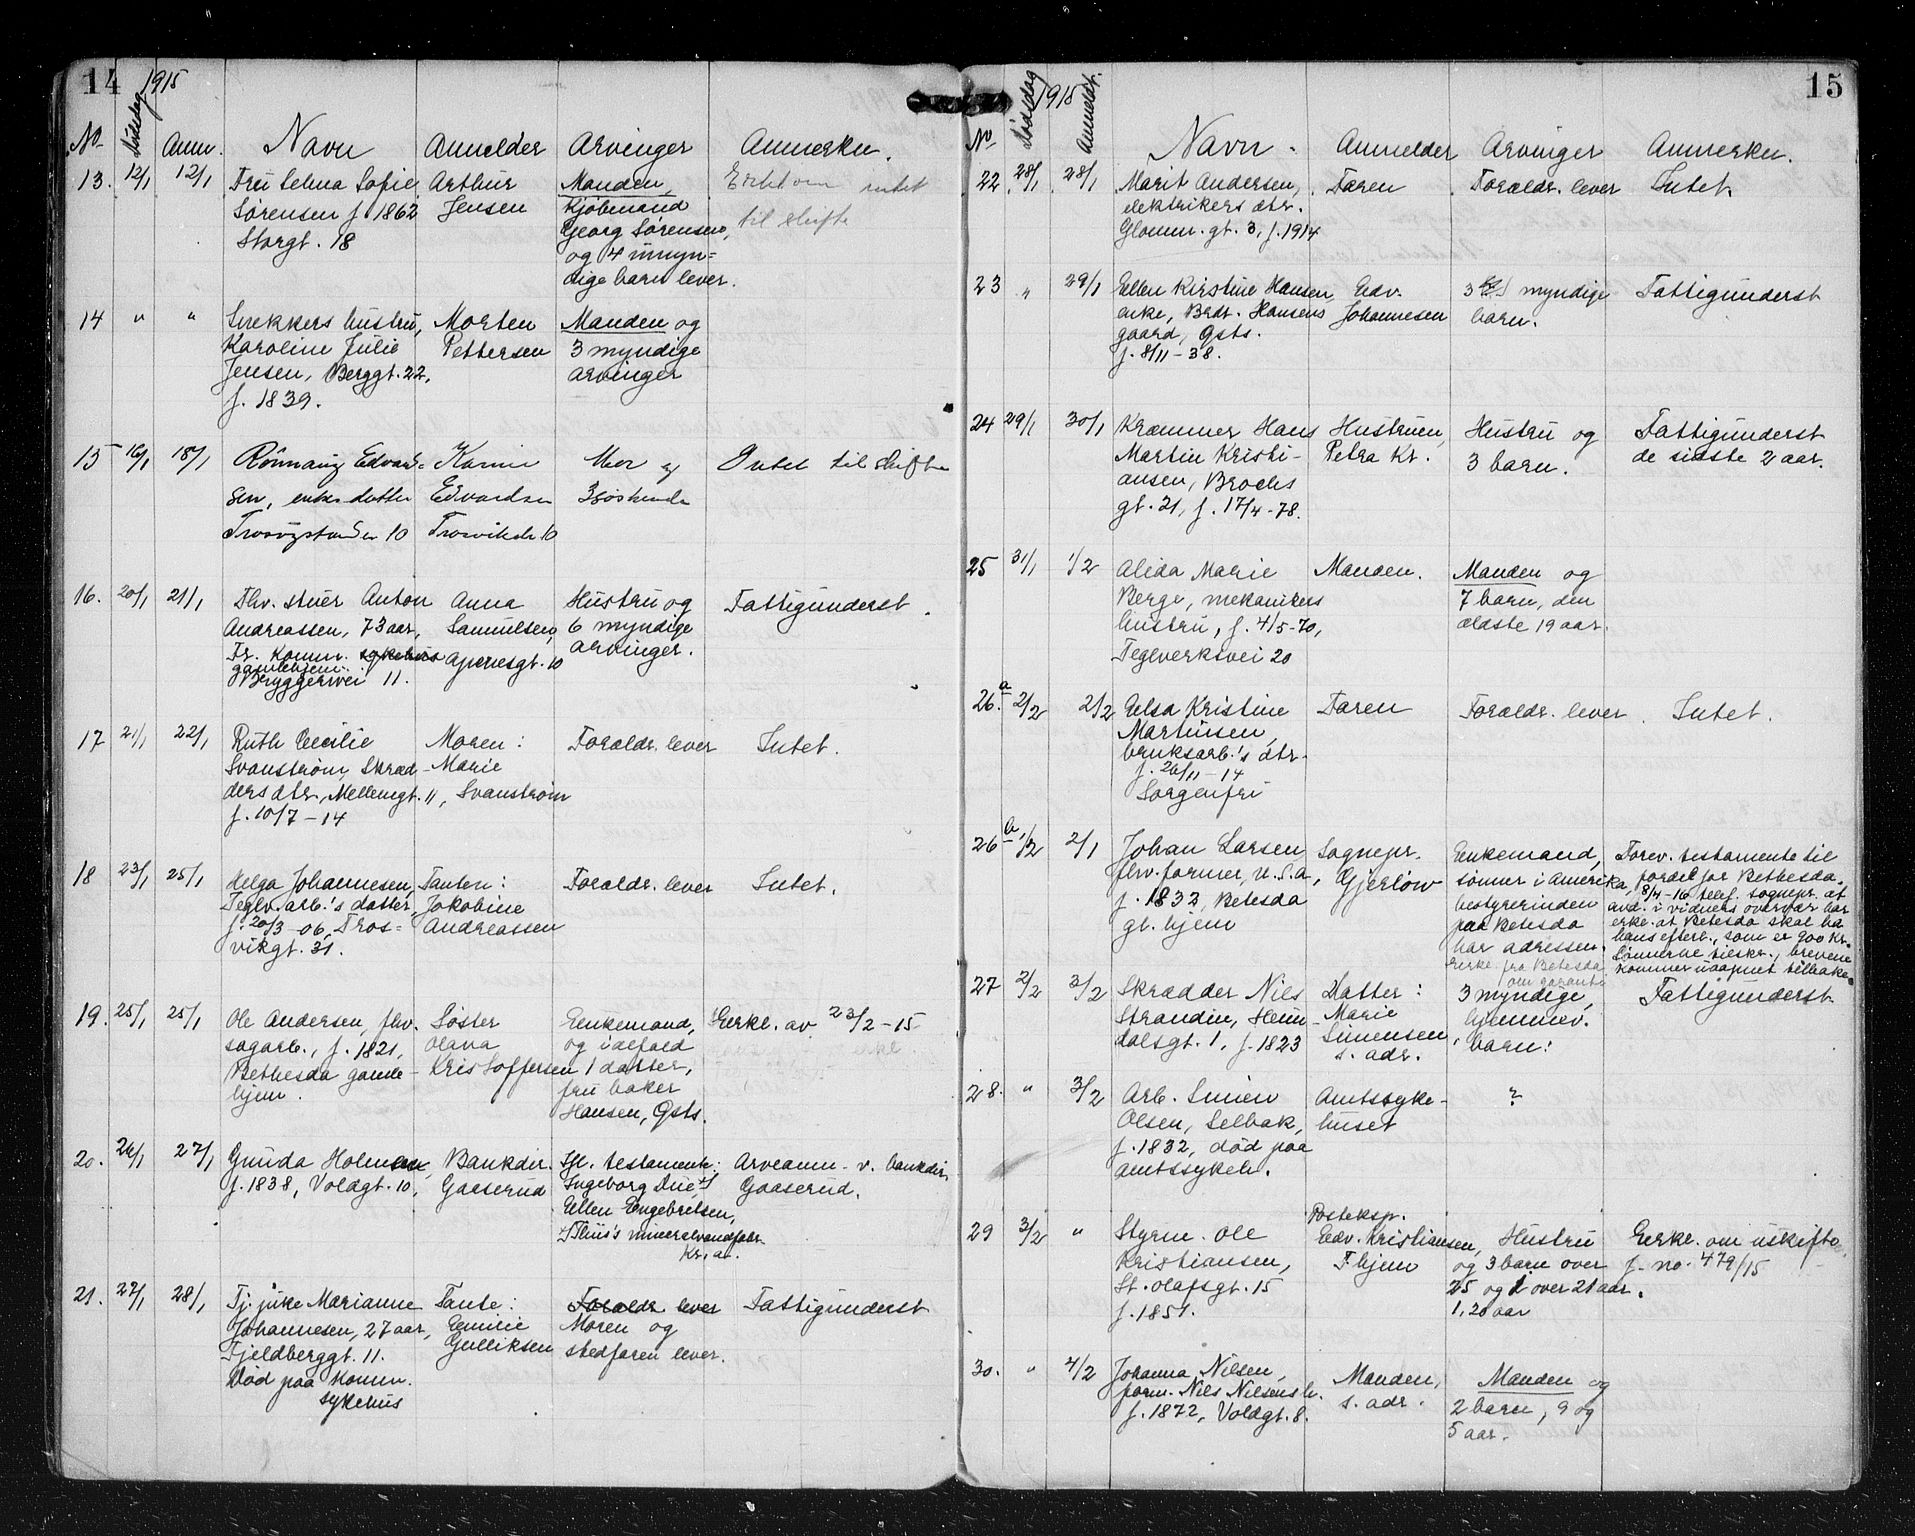 14 1915
No Dødsdag Anm. Navn Anmelder Arvinger Anmerkn.
13. 12/1 12/1 Fru Selma Sofie Arthur Manden, intet
Sørensen f. 1862 Jensen Kjøbmand til skifte
Storgt. 18 Georg Sørensen,
og 4 umyn=
dige barn lever.
14 " " Snekkers hustru, Morten Manden og
Karoline Julie Pettersen 3 myndige
Jensen, Berggt. 22, arvinger
f. 1839.
15 16/1 18/1 Edvard- Mor og Intet til skifte
sen, enkes datter Edvardsen 3 søskende
10 10
16. 20/1 21/1 Fhv. stuer Anton Anna Hustru og Fattigunderst.
Andreassen, 73 aar, Samuelsen, 6 myndige
Fr. Komm. sykehus Agnesgt. 10 arvinger.
gamlehjem.
Bryggerivei 11.
17 21/1 22/1 Ruth Cecilie Moren: Forældr. lever Intet.
Svanstrøm, Skræd- Marie
ders dtr., Mellemgt. 11, Svanstrøm
f. 10/7-14
18 23/1 25/1 Helga Johannesen, Tanten: Forældr. lever Intet.
Teglv.arb.'s datter, Jakobine
f. 20/3-06, Tros= Andreassen
vikgt. 31.
19. 25/1 25/1 Ole Andersen, fhv. Søster Enkemand, Erkl. av 23/2-15
sagarb., f. 1821, Olava og ialfald
Bethesda gamle- Kristoffersen 1 datter,
hjem. fru baker
Hansen, Gsts.
20. 26/1 27/1 Gunda Holmsen, Bankdir. Ifl. testamente: Arveanm. v. bankdir.
f. 1838, Voldgt. 10, Gaaserud Ingeborg Due, Gaaserud.
Ellen Engebretsen,
Kr.a.
21. 27/1 28/1 Tj.pike Marianne Tante: Forældr. lever Fattigunderst
Johannesen, 27 aar, Emilie Moren og
Fjeldberggt. 11. Gulliksen stedfaren lever.
Død paa Komm.
sykehus
15
1915
No Dødsdag Anmeldt. Navn. Anmelder Arvinger Anmerkn.
22. 28/1 28/1 Marit Andersen, Faren Forældr. lever Intet.
elektrikers dtr.
Glomm. gt. 3, f. 1914
23 " 29/1 Ellen Kirstine Hansen Edv. 3 myndige Fattigunderst
enke, Brdr. Hansens Johannesen barn.
gaard, Gsts.
f. 8/11-38.
24 29/1 30/1 Kræmmer Hans Hustruen, Hustru og Fattigunderst
Martin Kristi- Petra Kr. 3 barn. de sidste 2 aar.
ansen, Brochs
gt. 21, f. 17/4-78.
25 31/1 1/2 Alida Marie Manden. Manden og
Berge, mekanikers 7 barn, den
hustru, f. 4/5-70, ældste 19 aar.
Teglverksvei 20
26.a 2/2 2/2 Elsa Kristine Faren Forældr. lever. Intet.
Martinsen,
bruksarb.'s dtr.
f. 26/11-14
Sorgenfri
26 b. 1/2 2/1 Johan Larsen Sognepr. Enkemand, Forev. testamente til
fhv. farmer, U.S.A, Gjerløw sønner i Amerika, fordel for Bethesda.
f. 1832, Betesda bestyrerinden 8/4-16 telef. sognepr. at
gl. hjem paa Betesda avd. i vidners overvær har
har adressen. erkl. at Betesda skal ha
Erkl. fra Betesda hans efterl., som er 900 kr.
om garanti Sønnerne tilskr., brevene
kommer uaapnet tilbake.
27 2/2 3/2 Skrædder Nils Datter: 3 myndige, Fattigunderst
Strandin, Heim- Marie hjemmev.
dalsgt. 1, f. 1823 Simensen, barn:
s. adr.
28. " 3/2 Arb. Simen Amtssyke- ?
Olsen, Selbak, huset
f. 1832, død paa
amtssykeh.
29 3/2 " Styrm. Ole Posteksp.
Kristiansen, Edv. Kristiansen, Hustru Erkl. om uskifte,
St. Olafsgt. 15 F.hjem og 3 barn over j. no. 479/15
f. 1851. 25 og 1 over 21 aar.
1, 20 aar
30. " 4/2 Johanna Nilsen, Manden, Manden og
form. Nils Nilsens h. s. adr. 2 barn, 9 og
f. 1872, Voldgt. 8. 5 aar.